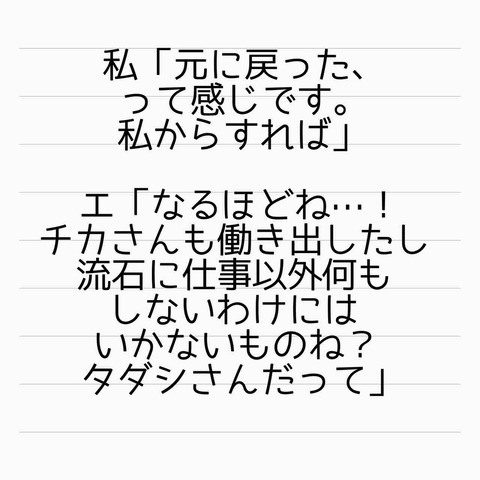 私「元に戻った、
って感じです。
私からすれば」
エ「なるほどね…！
チカさんも働き出したし
流石に仕事以外何も
しないわけには
いかないものね？
タダシさんだって」